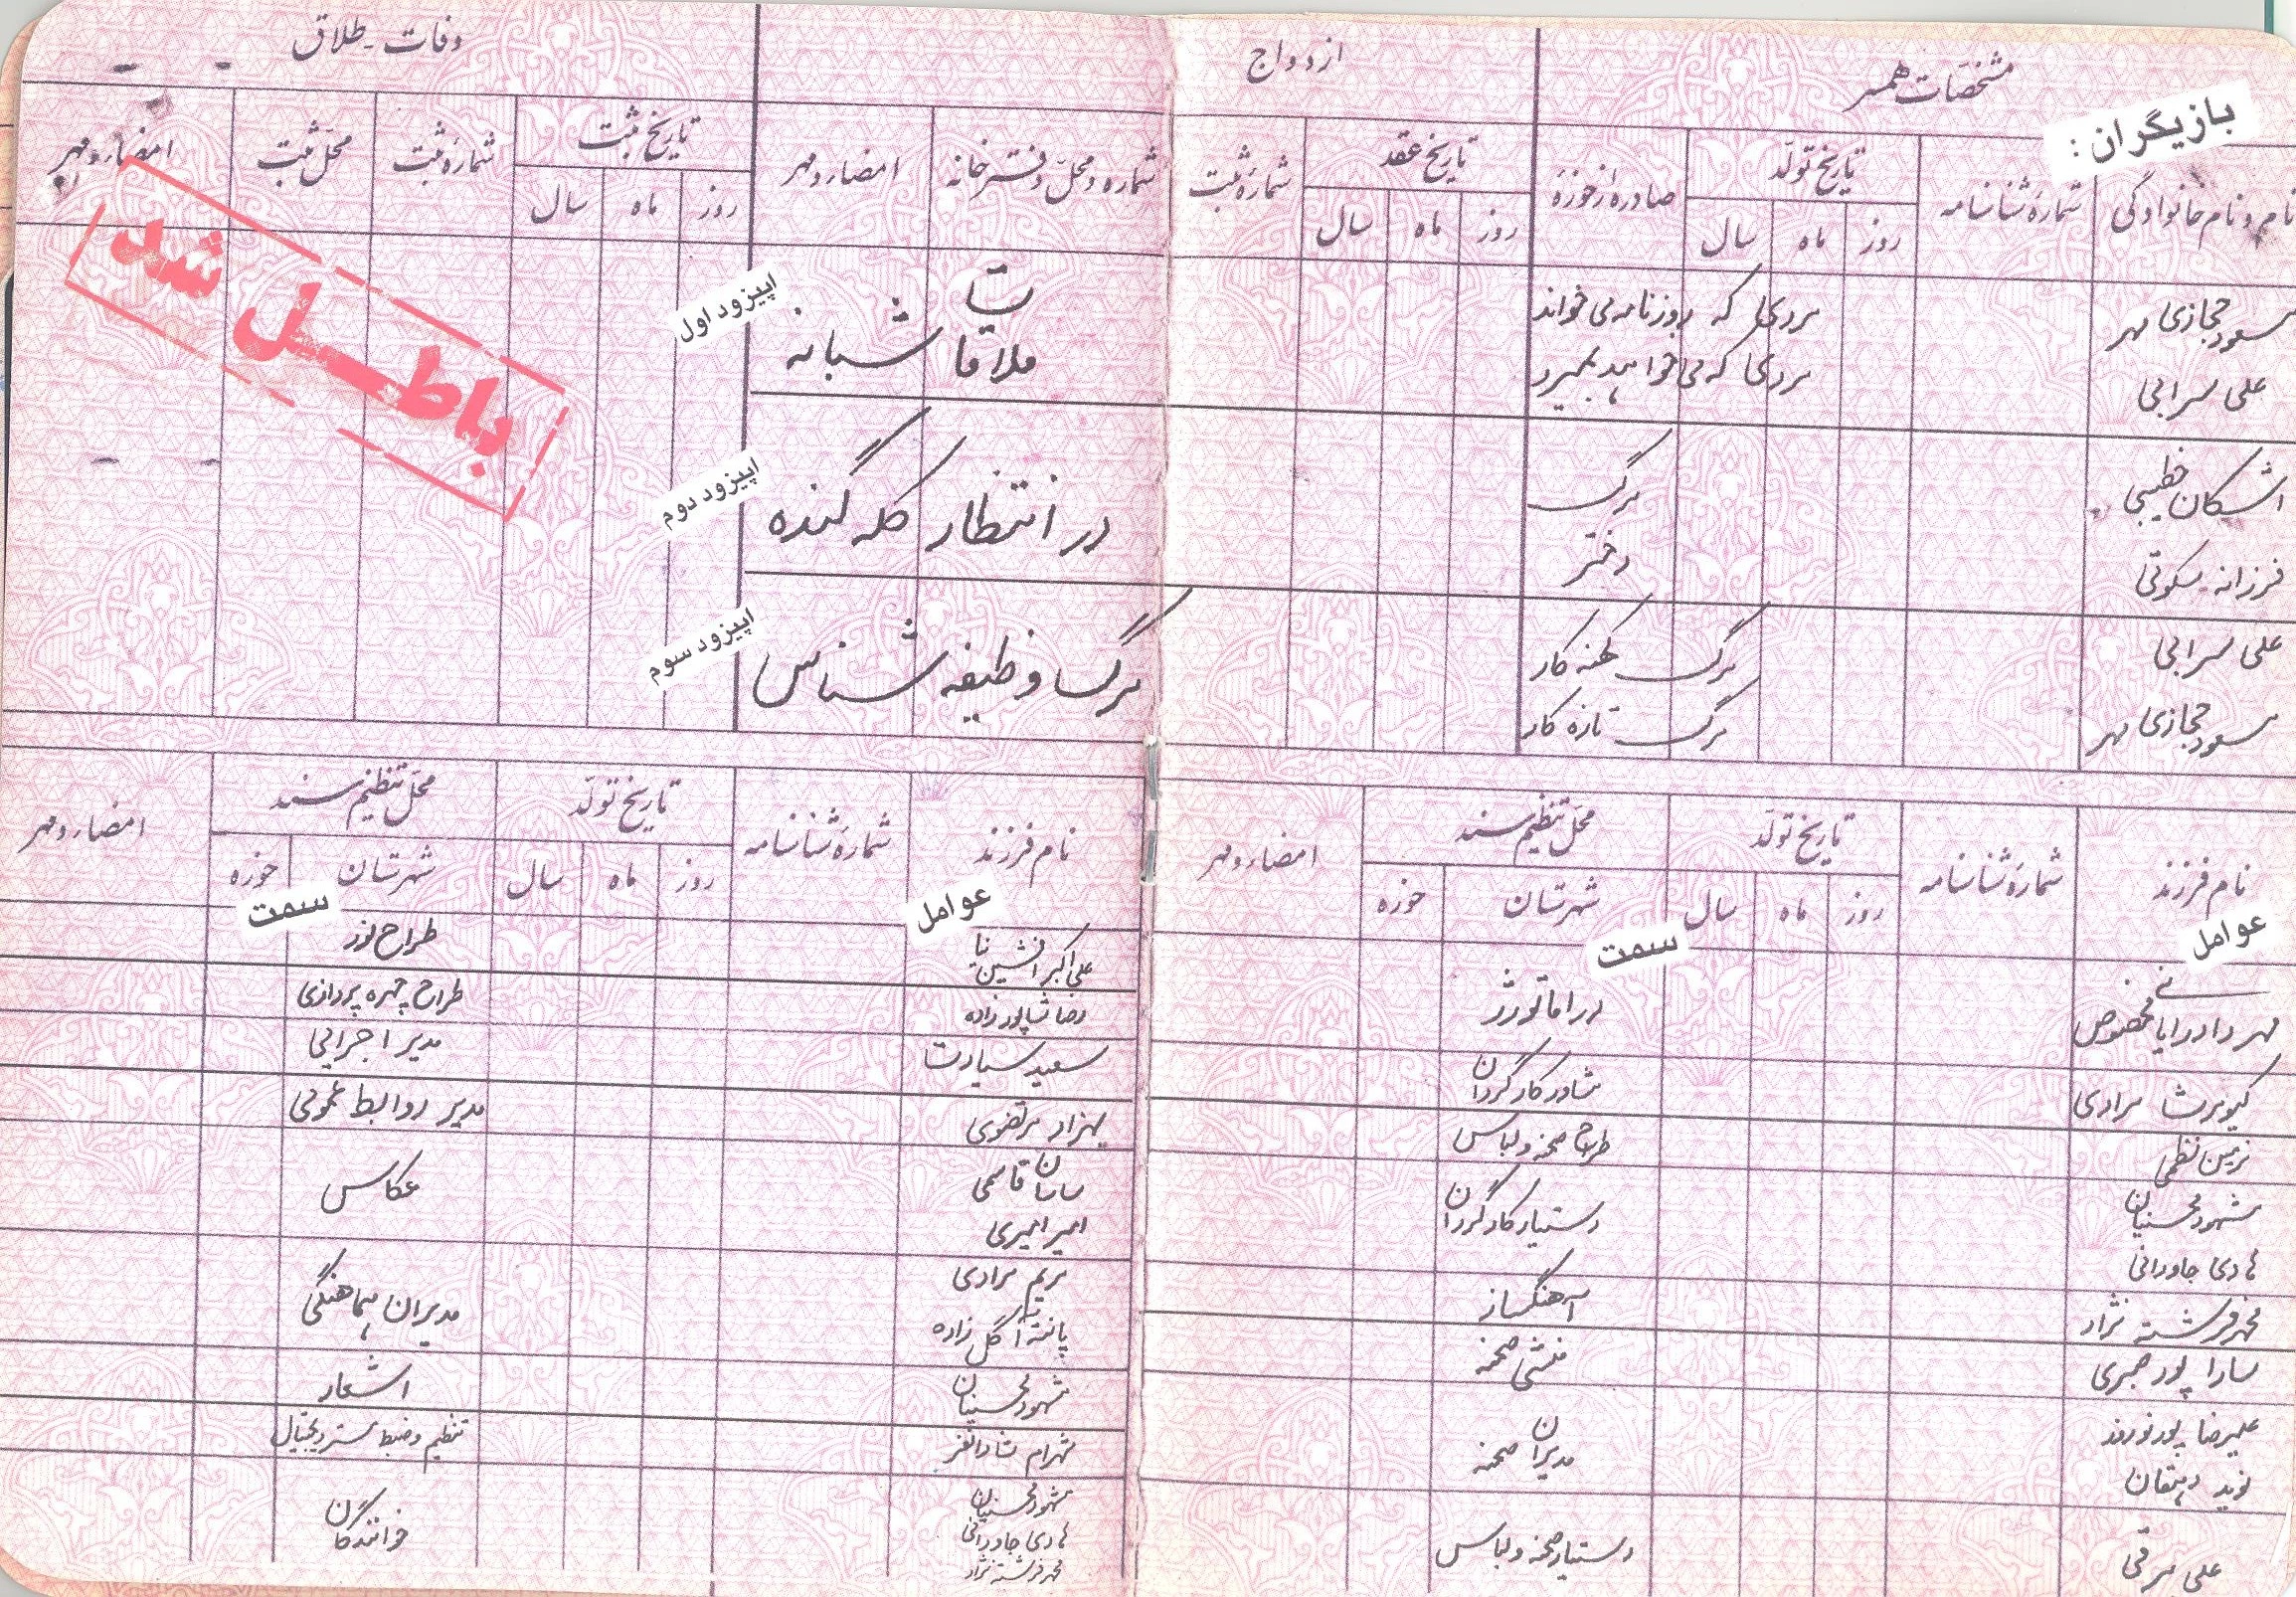 مشخصات همسر
ازدواج
وفات - طلاق
بازیگران :
نام و نام خانوادگی
شماره شناسنامه
تاریخ تولد
روز
ماه
سال
صادره از حوزه
تاریخ عقد
روز
ماه
سال
شماره ثبت
شماره و محل دفترخانه
امضاء و مهر
تاریخ ثبت
روز
ماه
سال
شماره ثبت
محل ثبت
امضاء و مهر
باطل شد
مسعود حجازی مهر
مردی که روزنامه می‌خواند
علی سرابی
مردی که می‌خواهد بمیرد
اپیزود اول
ملاقات شبانه
اشکان خطیبی
مرگ
فرزانه سکوتی
دختر
اپیزود دوم
در انتظار کله گنده
علی سرابی
مرگ کهنه کار
مسعود حجازی مهر
مرگ تازه کار
اپیزود سوم
مرگ وظیفه شناس
نام فرزند
شماره شناسنامه
تاریخ تولد
روز
ماه
سال
محل تنظیم سند
شهرستان
حوزه
امضاء و مهر
عوامل
سمت
مهرداد رایانی مخصوص
دراماتورژ
کیومرث مرادی
مشاور کارگردان
نرمین نظمی
طراح صحنه و لباس
شهود محسنیان
هادی جاودانی
دستیار کارگردان
محمد فرشته نژاد
آهنگساز
سارا پورصبری
منشی صحنه
علیرضا پورنوروز
نوید دهقان
مدیران صحنه
علی مرقی
دستیار صحنه و لباس
نام فرزند
شماره شناسنامه
تاریخ تولد
روز
ماه
سال
محل تنظیم سند
شهرستان
حوزه
امضاء و مهر
عوامل
سمت
علی اکبر افشین نیا
طراح نور
رضا شاپورزاده
طراح چهره پردازی
سعید سیادت
مدیر اجرایی
بهزاد مرتضوی
مدیر روابط عمومی
ساسان قاسمی
امیر امیری
عکاس
مریم مرادی
پانته آ گل زاده
مدیران هماهنگی
شهود محسنیان
اشعار
شهرام شادانفر
تنظیم و ضبط مستر دیجیتال
شهود محسنیان
هادی جاودانی
محمد فرشته نژاد
خوانندگان